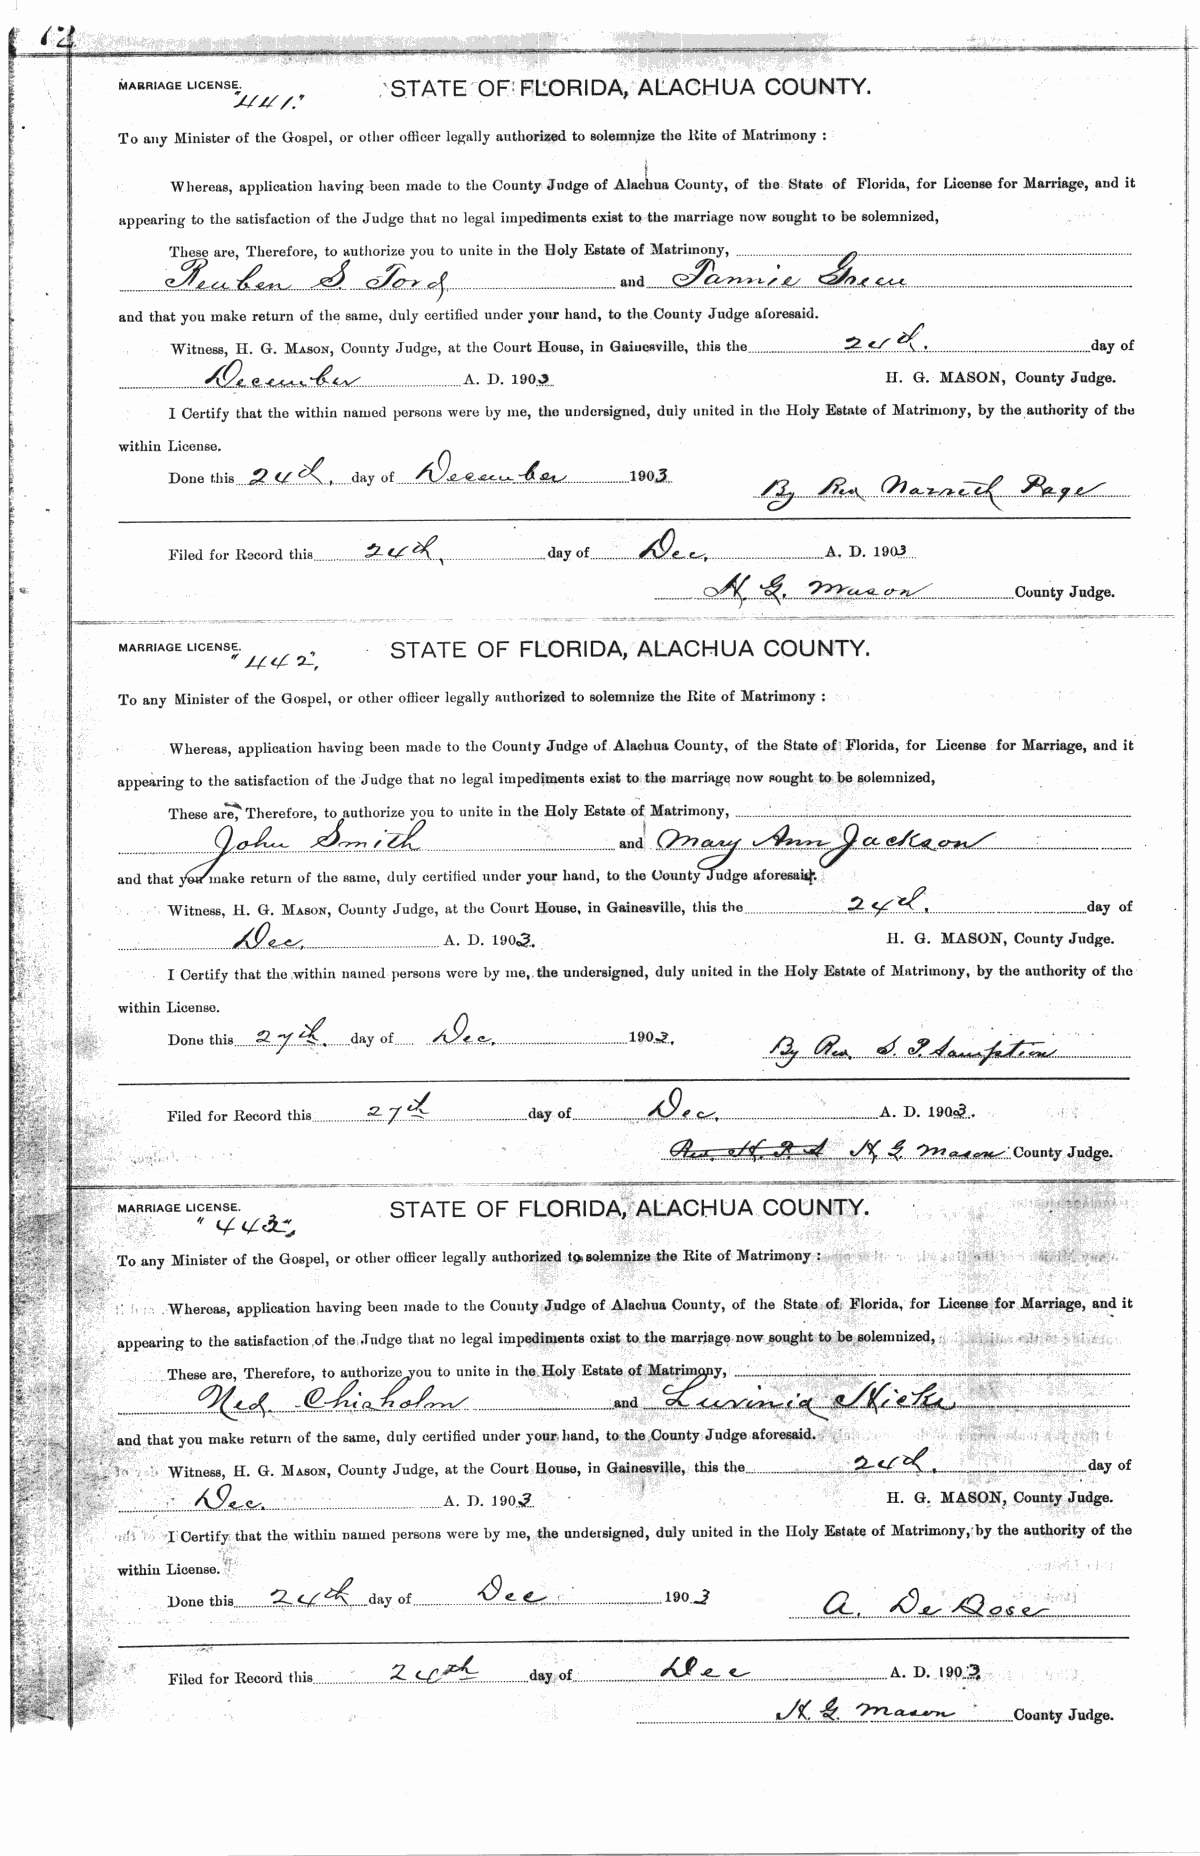 12
MARRIAGE LICENSE. STATE OF FLORIDA, ALACHUA COUNTY.
"441."
To any Minister of the Gospel, or other officer legally authorized to solemnize the Rite of Matrimony :
Whereas, application having been made to the County Judge of Alachua County, of the State of Florida, for License for Marriage, and it
appearing to the satisfaction of the Judge that no legal impediments exist to the marriage now sought to be solemnized,
These are, Therefore, to authorize you to unite in the Holy Estate of Matrimony,
Reuben S. Ford and Fannie Green
and that you make return of the same, duly certified under your hand, to the County Judge aforesaid.
Witness, H. G. MASON, County Judge, at the Court House, in Gainesville, this the 24th. day of
December A. D. 1903 H. G. MASON, County Judge.
I Certify that the within named persons were by me, the undersigned, duly united in the Holy Estate of Matrimony, by the authority of the
within License.
Done this 24th, day of December 1903
By Rev Page
Filed for Record this 24th, day of Dec, A. D. 1903
H. G. Mason County Judge.
MARRIAGE LICENSE. STATE OF FLORIDA, ALACHUA COUNTY.
"442",
To any Minister of the Gospel, or other officer legally authorized to solemnize the Rite of Matrimony :
Whereas, application having been made to the County Judge of Alachua County, of the State of Florida, for License for Marriage, and it
appearing to the satisfaction of the Judge that no legal impediments exist to the marriage now sought to be solemnized,
These are, Therefore, to authorize you to unite in the Holy Estate of Matrimony,
John Smith and Mary Ann Jackson
and that you make return of the same, duly certified under your hand, to the County Judge aforesaid.
Witness, H. G. MASON, County Judge, at the Court House, in Gainesville, this the 24th. day of
Dec. A. D. 1903. H. G. MASON, County Judge.
I Certify that the within named persons were by me, the undersigned, duly united in the Holy Estate of Matrimony, by the authority of the
within License.
Done this 27th. day of Dec. 1903.
By Rev. S. P. Sampton
Filed for Record this 27th day of Dec. A. D. 1903.
Rev. H. R. S H. G. Mason County Judge.
MARRIAGE LICENSE. STATE OF FLORIDA, ALACHUA COUNTY.
"443",
To any Minister of the Gospel, or other officer legally authorized to solemnize the Rite of Matrimony :
Whereas, application having been made to the County Judge of Alachua County, of the State of Florida, for License for Marriage, and it
appearing to the satisfaction of the Judge that no legal impediments exist to the marriage now sought to be solemnized,
These are, Therefore, to authorize you to unite in the Holy Estate of Matrimony,
Ned Chisholm and Luvinia Hicks
and that you make return of the same, duly certified under your hand, to the County Judge aforesaid.
Witness, H. G. MASON, County Judge, at the Court House, in Gainesville, this the 24th. day of
Dec. A. D. 1903 H. G. MASON, County Judge.
I Certify that the within named persons were by me, the undersigned, duly united in the Holy Estate of Matrimony, by the authority of the
within License.
Done this 24th day of Dec. 1903
A. De Bose
Filed for Record this 24th day of Dec A. D. 1903
H. G. Mason County Judge.